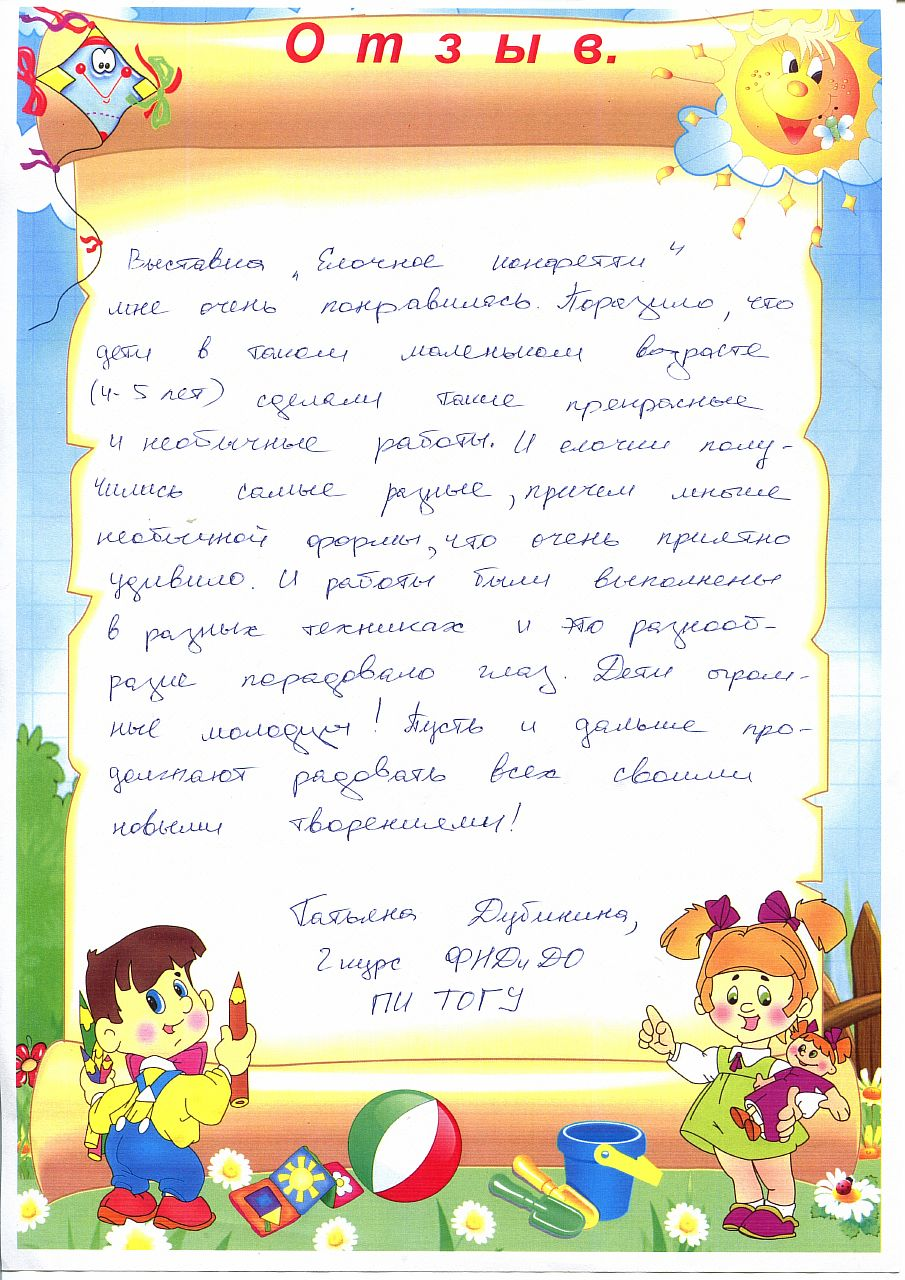 Отзыв.
Выставка „Елочное конфетти"
мне очень понравилась. Поразило, что
дети в таком маленьком возрасте
(4-5 лет) сделали такие прекрасные
и необычные работы. И елочки полу-
чились самые разные, причем многие
необычной формы, что очень приятно
удивило. И работы были выполнены
в разных техниках и это разнооб-
разие порадовало глаз. Дети огром-
ные молодцы! Пусть и дальше про-
должают радовать всех своими
новыми творениями!
Татьяна Дубинина,
2 курс ФНДиДО
ПИ ТОГУ